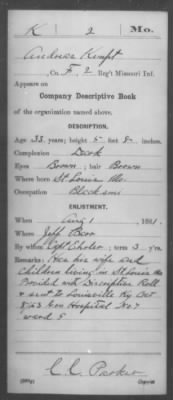 K 2 Mo.
Andreas Kimpt
, Co. F, 2 Reg't Missouri Inf.
Appears on
Company Descriptive Book
of the organization named above.
DESCRIPTION.
Age 33 years; height 5 feet 8 inches.
Complexion Dark
Eyes Brown; hair Brown
Where born St Louis Mo.
Occupation Blacksmi
ENLISTMENT.
When Aug 1, 1861.
Where Jeff Barr
By whom Capt Ehrler; term 3 y'rs.
Remarks: Has his wife and
children living in St Louis Mo
Provided with Discriptive Roll
& sent to Louisville Ky Oct
8/63 Gen Hospital No 7
ward 5
C C Parker
Copyist.